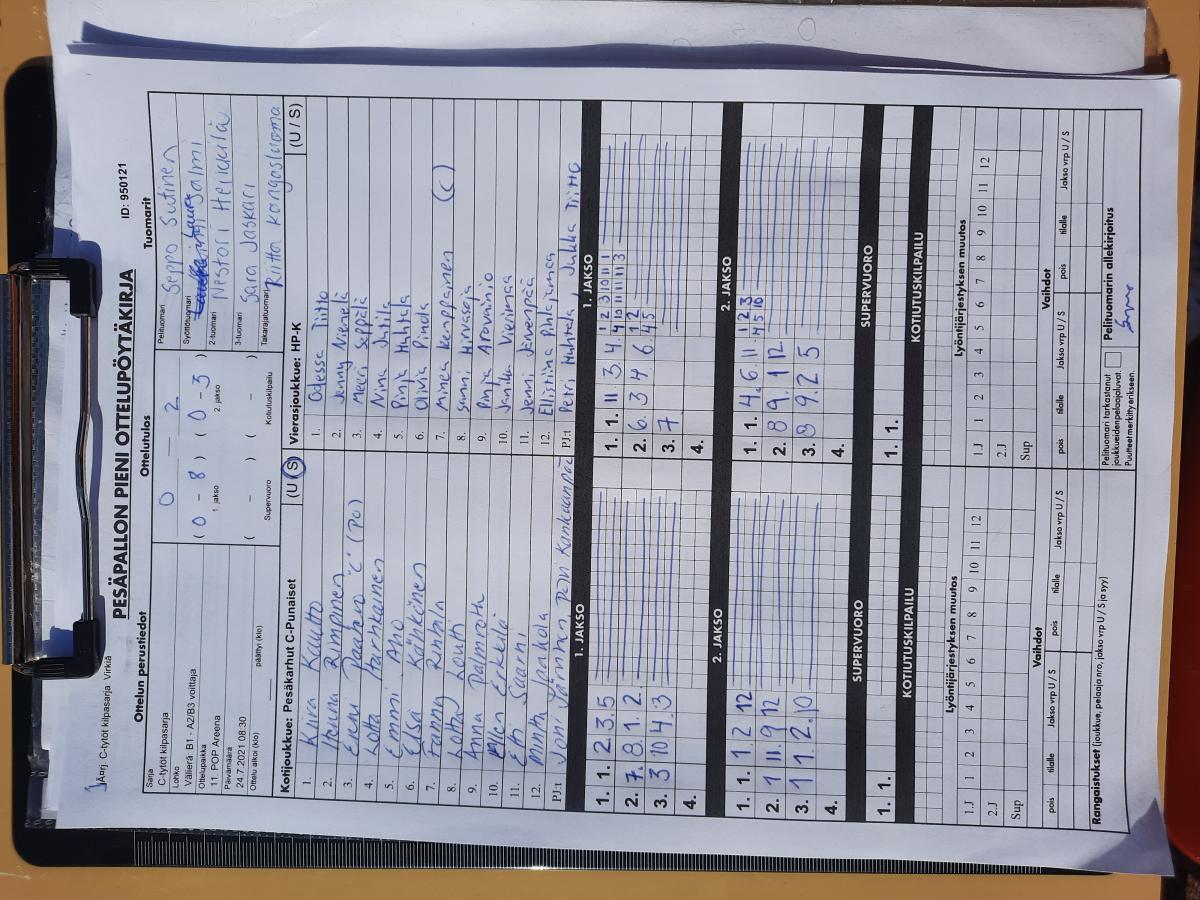 Järj. C-tytöt kilpasarja: Virkiä
PESÄPALLON PIENI OTTELUPÖYTÄKIRJA
ID: 950121
Ottelun perustiedot
Sarja
C-tytöt kilpasarja
Lohko
Välierä: B1 - A2/B3 voittaja
Ottelupaikka
11. POP Areena
Päivämäärä
24.7.2021 08:30
Ottelu alkoi (klo) päättyi (klo)
Ottelutulos
0 — 2
( 0 - 8 ) ( 0 - 3 )
1. jakso 2. jakso
( - ) ( - )
Supervuoro Kotiutuskilpailu
Tuomarit
Pelituomari Seppo Sutinen
Syöttötuomari Salmi
2-tuomari Nestori Heikkilä
3-tuomari Sara Jaskari
Takarajatuomari Riitta Kangasluoma
Kotijoukkue: Pesäkarhut C-Punaiset (U / S)
1. Kiira Kautto
2. Rimpinen
3. "C" (PO)
4. Lotta
5. Emmi Aho
6. Elsa
7. Fanny
8. Lotta
9. Anna Palmroth
10. Erkkilä
11. Saarni
12. Minttu
PJ:t Joni
Vierasjoukkue: HP-K (U / S)
1. Odessa Tiitto
2. Jenny Niemelä
3. Meeri Seppälä
4. Nina
5. Pinja Huhtala
6. Olivia
7. Minea Kemppainen (C)
8. Sanni Hirvasoja
9. Pinja Arovainio
10. Janika Vierimaa
11. Jenni Järvenpää
12. Ellistiina
PJ:t Petri Huhtala, Jukka Tiitto
1. JAKSO
1. 1. 2. 3. 5
2. 7. 8. 1. 2.
3. 3 10 4 3
4.
1. JAKSO
1. 1. 11 3 4. 1 2 3 10 11 1
4 10 11 11 1 3
2. 6. 3 4 6. 1 2
4 5
3. 7
4.
2. JAKSO
1. 1. 1. 2 12
2. 1 11. 9 12
3. 1 1. 2. 10
4.
2. JAKSO
1. 1. 4. 6. 11. 1 2 3
4 5 10
2. 8 9. 1 12
3. 8 9. 2 5
4.
SUPERVUORO
1. 1.
SUPERVUORO
1. 1.
KOTIUTUSKILPAILU
KOTIUTUSKILPAILU
Lyöntijärjestyksen muutos
1.J 1 2 3 4 5 6 7 8 9 10 11 12
2.J
Sup
Lyöntijärjestyksen muutos
1.J 1 2 3 4 5 6 7 8 9 10 11 12
2.J
Sup
Vaihdot
pois tilalle Jakso vrp U / S pois tilalle Jakso vrp U / S
Vaihdot
pois tilalle Jakso vrp U / S pois tilalle Jakso vrp U / S
Rangaistukset (joukkue, pelaaja nro, jakso vrp U / S ja syy)
Pelituomari tarkastanut
joukkueiden pelaajaluvat.
Puutteet merkitty erikseen.
Pelituomarin allekirjoitus